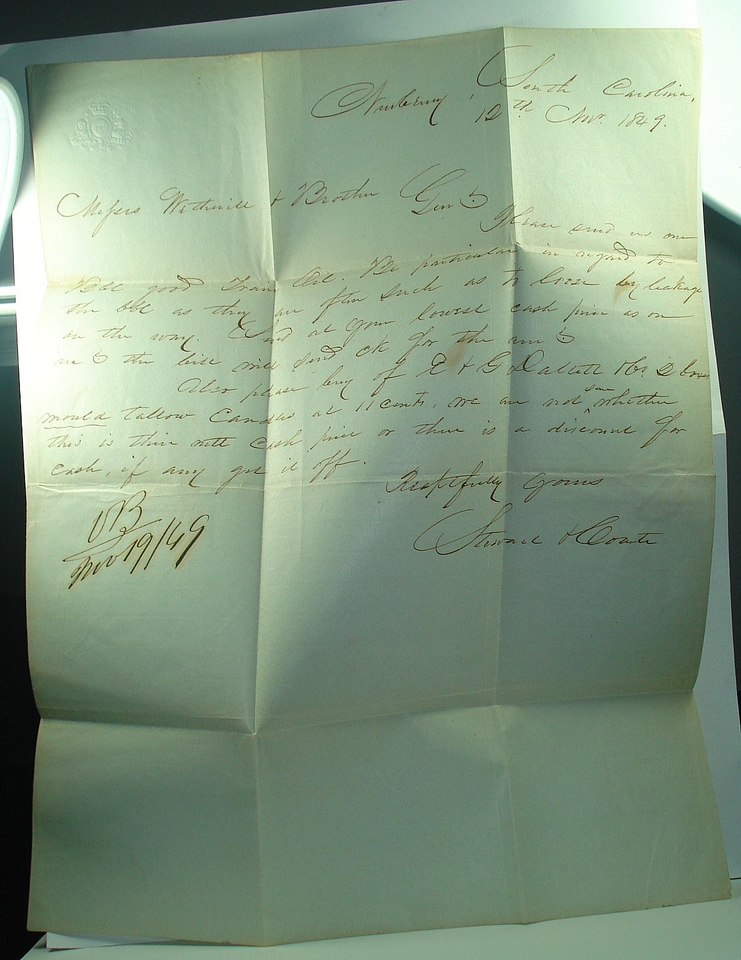 Newberry, South Carolina,
12th Nov. 1849.
Messrs Wetherill & Brother Gents
Please send us one
bbl good Train Oil. Be particular in regard to
the bbl as they are often such as to loose by leakage
on the way. Send at your lowest cash price as on
the bill we'll send ck for the am't
Also please buy of E & G Dallett & Co 2 boxes
mould tallow Candles at 11 cents. we are not sure whether
this is their nett Cash price or there is a discount for
Cash, if any get it off.
Respectfully Yours
Steward & Coate
Nov 19/49